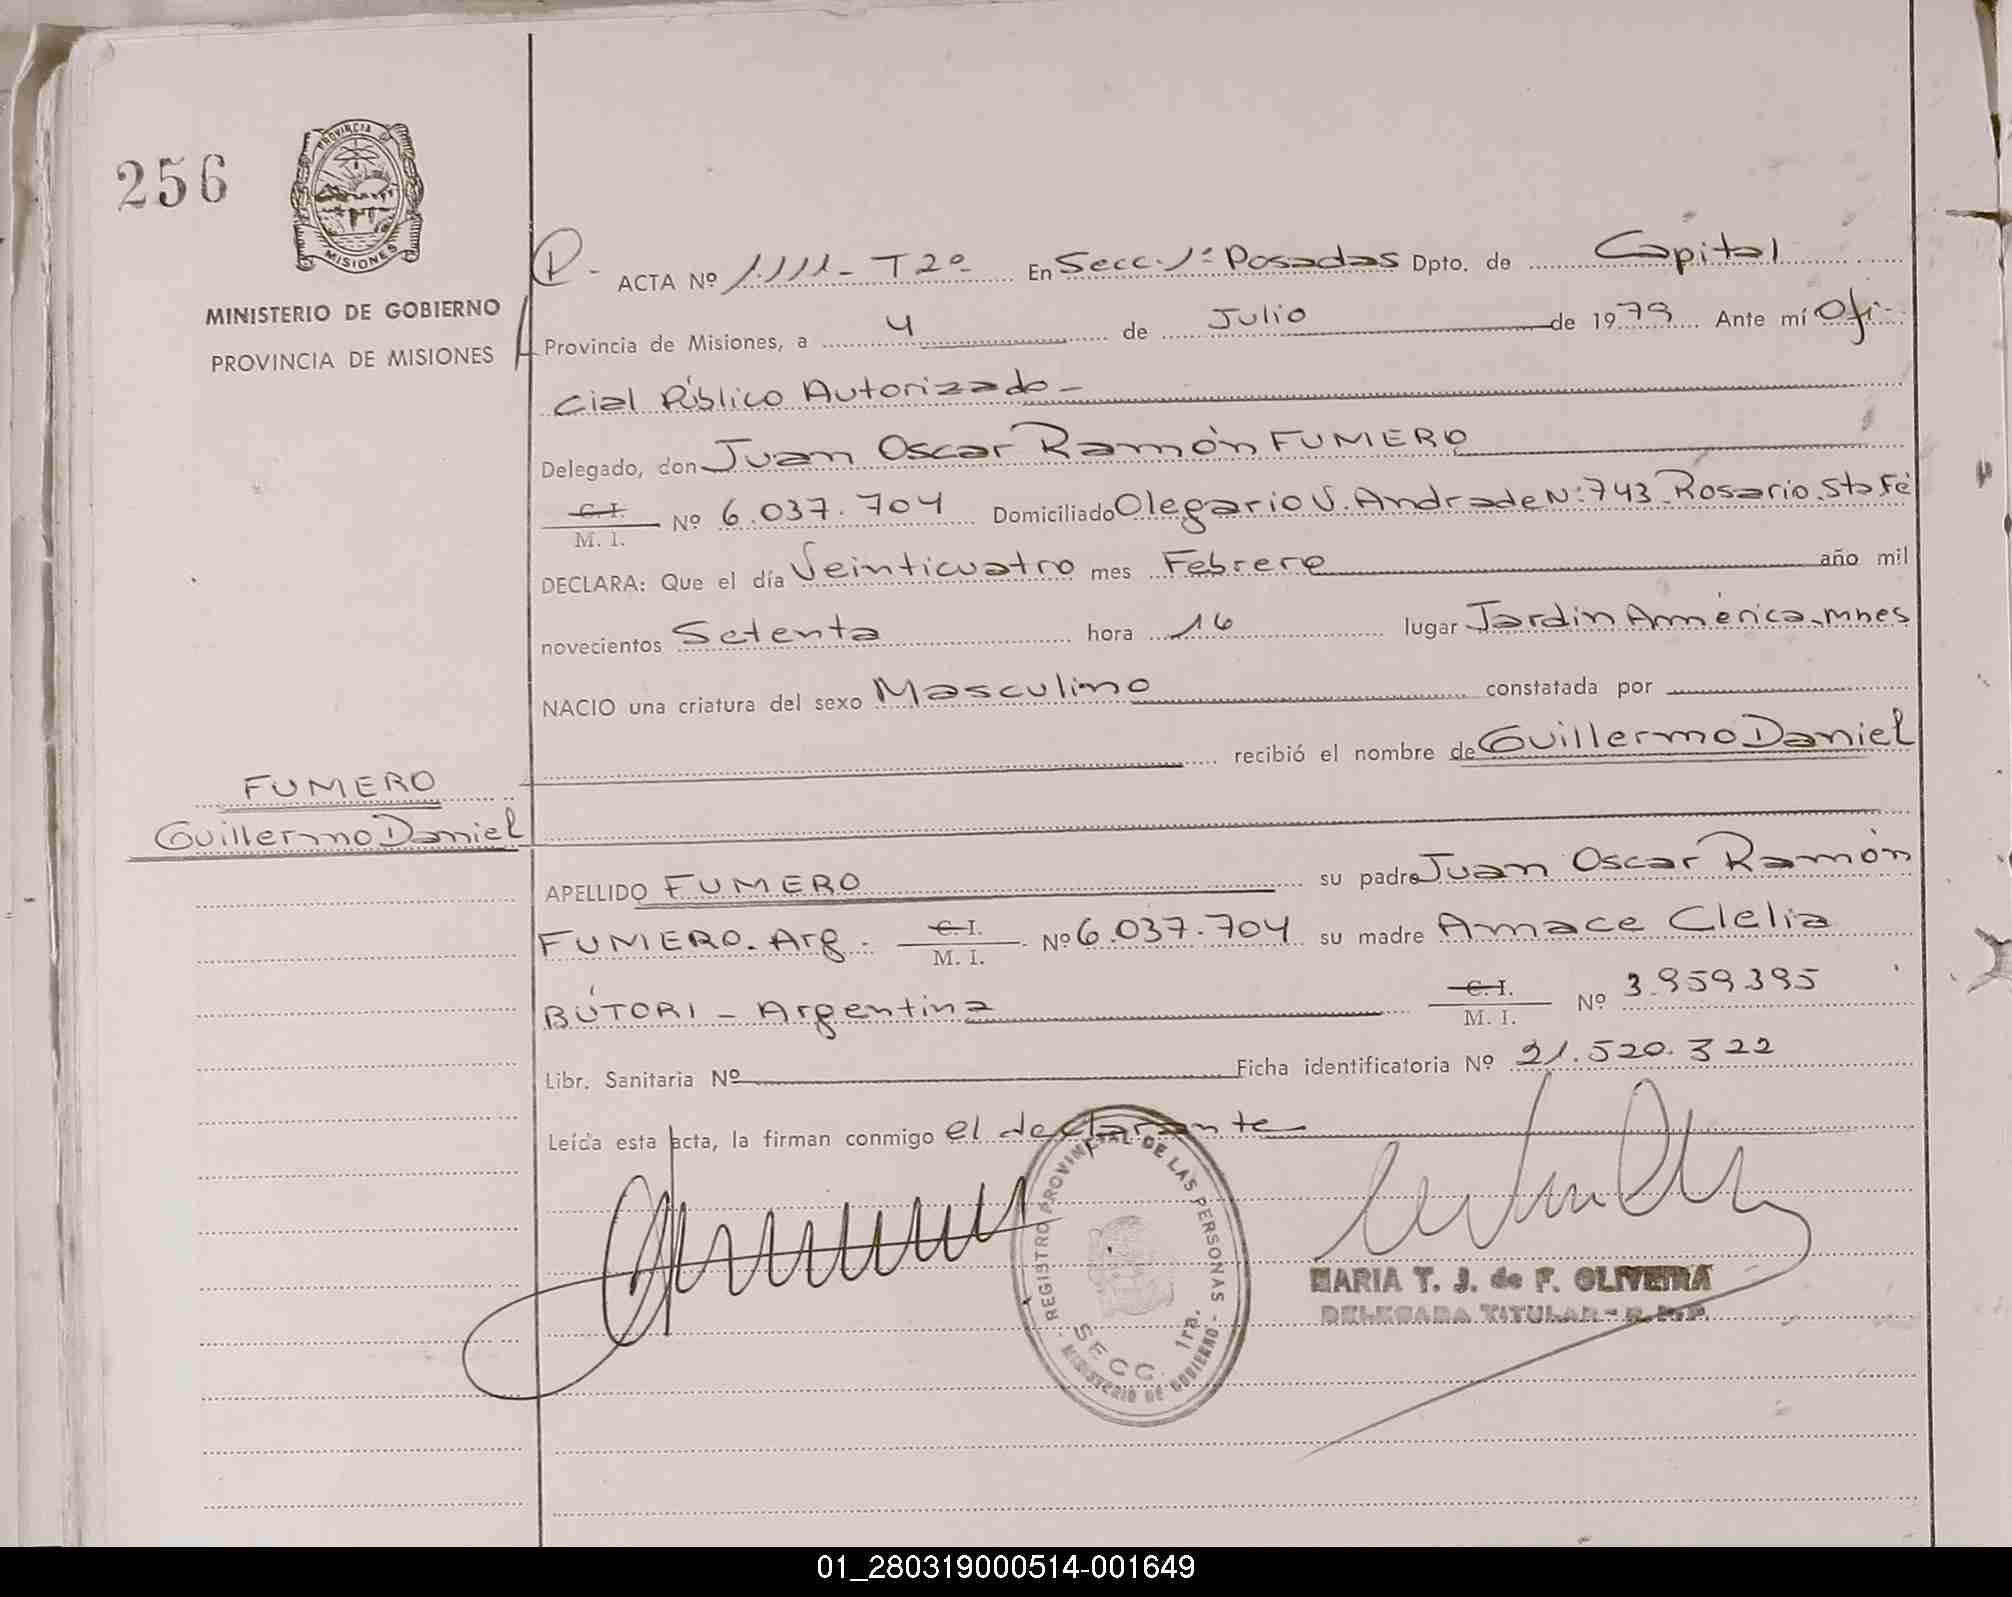 256
PROVINCIA DE
MISIONES
MINISTERIO DE GOBIERNO
PROVINCIA DE MISIONES
ACTA Nº 1.111 - T2º En Secc. 1ª Posadas Dpto. de Capital
Provincia de Misiones, a 4 de Julio de 1979 Ante mí Ofi-
cial Público Autorizado -
Delegado, don Juan Oscar Ramón FUMERO
C.I. / M. I. Nº 6.037.704 Domiciliado Olegario V. Andrade Nº 743 Rosario Sta Fé
DECLARA: Que el día Veinticuatro mes Febrero año mil
novecientos Setenta hora 16 lugar Jardin América, Mnes
NACIO una criatura del sexo Masculino constatada por
recibió el nombre de Guillermo Daniel
FUMERO
Guillermo Daniel
APELLIDO FUMERO su padre Juan Oscar Ramón
FUMERO. Arg. C.I. / M. I. Nº 6.037.704 su madre Amace Clelia
BÚTORI - Argentina C.I. / M. I. Nº 3.959.395
Libr. Sanitaria Nº Ficha identificatoria Nº 21.520.322
Leída esta acta, la firman conmigo el declarante
REGISTRO PROVINCIAL DE LAS PERSONAS
SECC. 1ra.
- MINISTERIO DE GOBIERNO -
MARIA T. J. de F. OLIVEIRA
DELEGADA TITULAR - R.P.P.
01_280319000514-001649